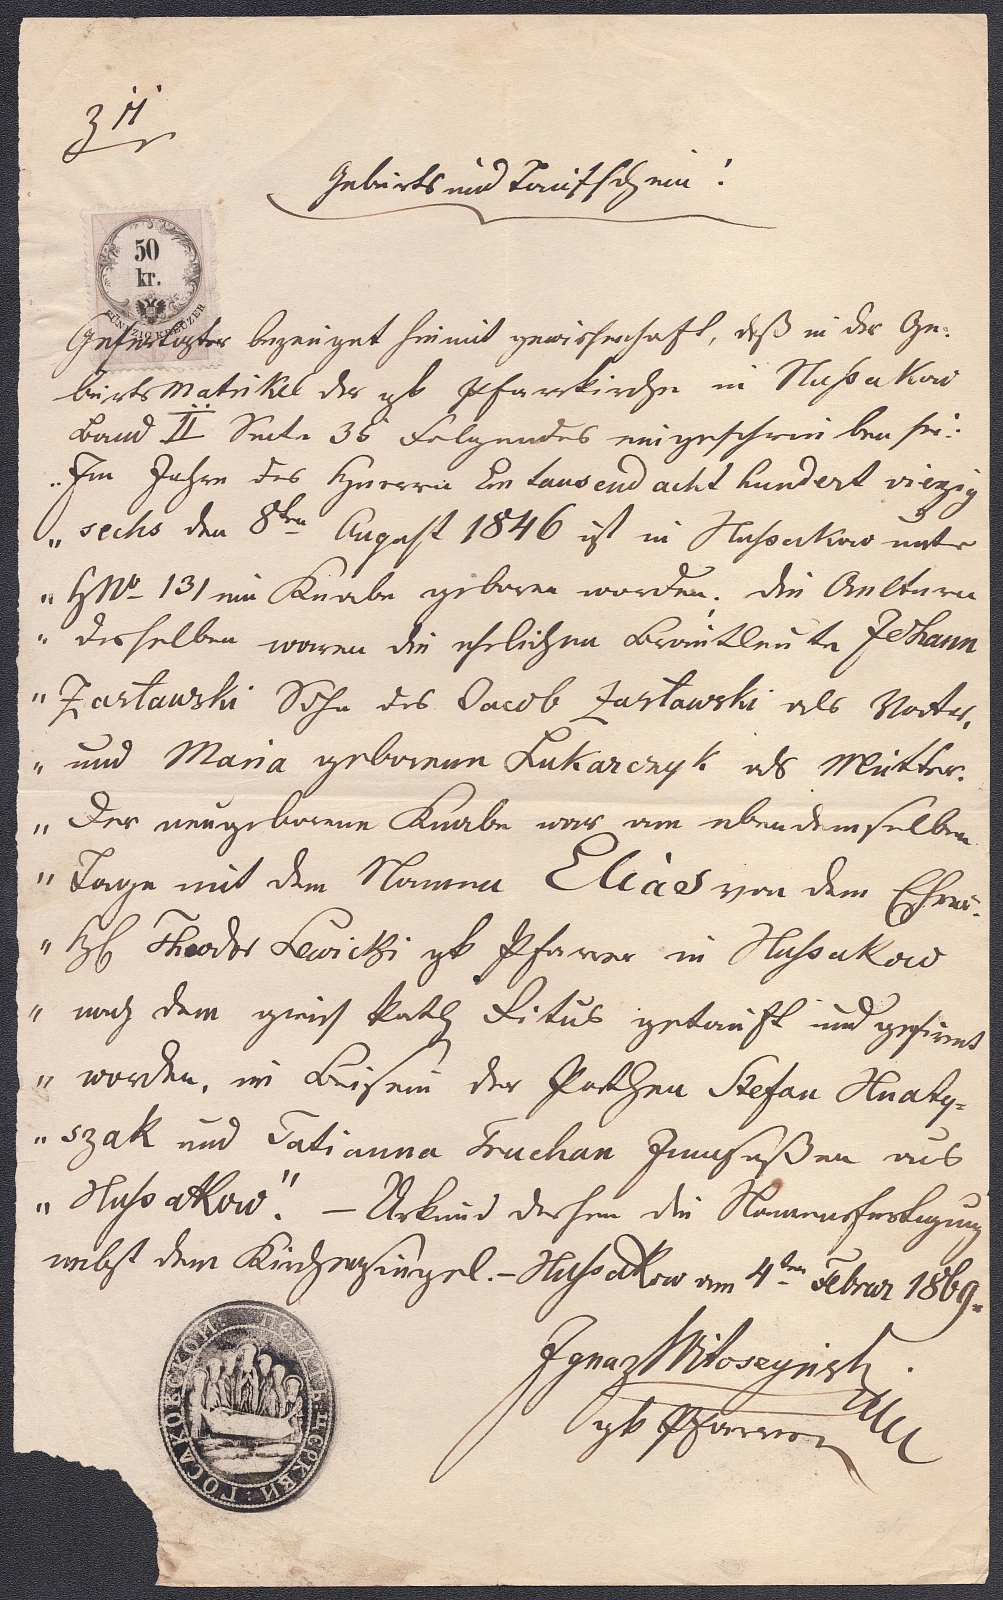 Z 11
Geburts und Taufschein!
50
kr.
FÜNFZIG KREUZER
Gefertigter bezeuget hiemit gewissenhaft, daß in der Ge-
burts Matrikel der gk Pfarrkirche in Hussakow
Band II Seite 36 Folgendes eingeschrieben sei:
„Im Jahre des Herrn Ein tausend acht hundert vierzig
„ sechs den 8ten August 1846 ist in Hussakow unter
„ HNo 131 ein Knabe geboren worden. Die Aeltern
„ desselben waren die ehelichen Brautleute Johann
„ Zastawski Sohn des Jacob Zastawski als Vater,
„ und Maria geborene Lukarczyk als Mutter.
„ Der neugeborene Knabe war am ebendemselben
„ Tage mit dem Namen Elias von dem
„ Theodor Lewicki gk Pfarrer in Hussakow
„ nach dem griech kath Ritus getauft und gefirmt
„ worden, im Beisein der Pathen Stefan Hnaty-
„ szak und Tatianna Truchan Innsaßen aus
„ Hussakow“. – Urkund dessen die Namensfertigung
nebst dem Kirchensiegel. – Hussakow am 4ten Februar 1869.
Ignaz
gk Pfarrer
ЦЕРКВИ ГОСАКОВСКОЙ